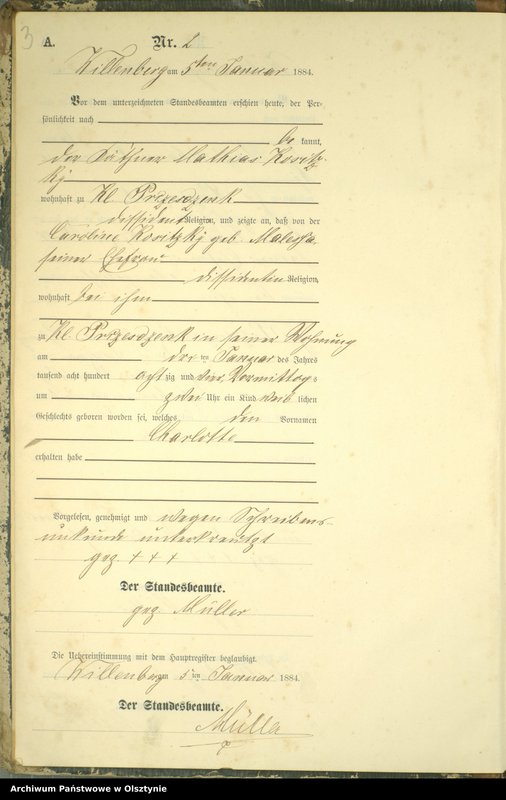 3
A. Nr. 2
Willenberg am 5ten Januar 1884.
Vor dem unterzeichneten Standesbeamten erschien heute, der Per-
sönlichkeit nach
be kannt,
der Käthner Mathias Kositz-
kÿ
wohnhaft zu Kl Przesdzenk
dissident Religion, und zeigte an, daß von der
Caroline Kositzkÿ geb. Malessa
seiner Ehefrau
dissidenten Religion,
wohnhaft bei ihm
zu Kl Przesdzenk in seiner Wohnung
am drei ten Januar des Jahres
tausend acht hundert acht zig und vier Vormittags
um zwei Uhr ein Kind weib lichen
Geschlechts geboren worden sei, welches den Vornamen
Charlotte
erhalten habe
Vorgelesen, genehmigt und wegen Schreibens-
unkunde unterkreutzt
gez. + + +
Der Standesbeamte.
gez. Müller
Die Uebereinstimmung mit dem Hauptregister beglaubigt.
Willenberg am 5 ten Januar 1884.
Der Standesbeamte.
Müller
Archiwum Państwowe w Olsztynie